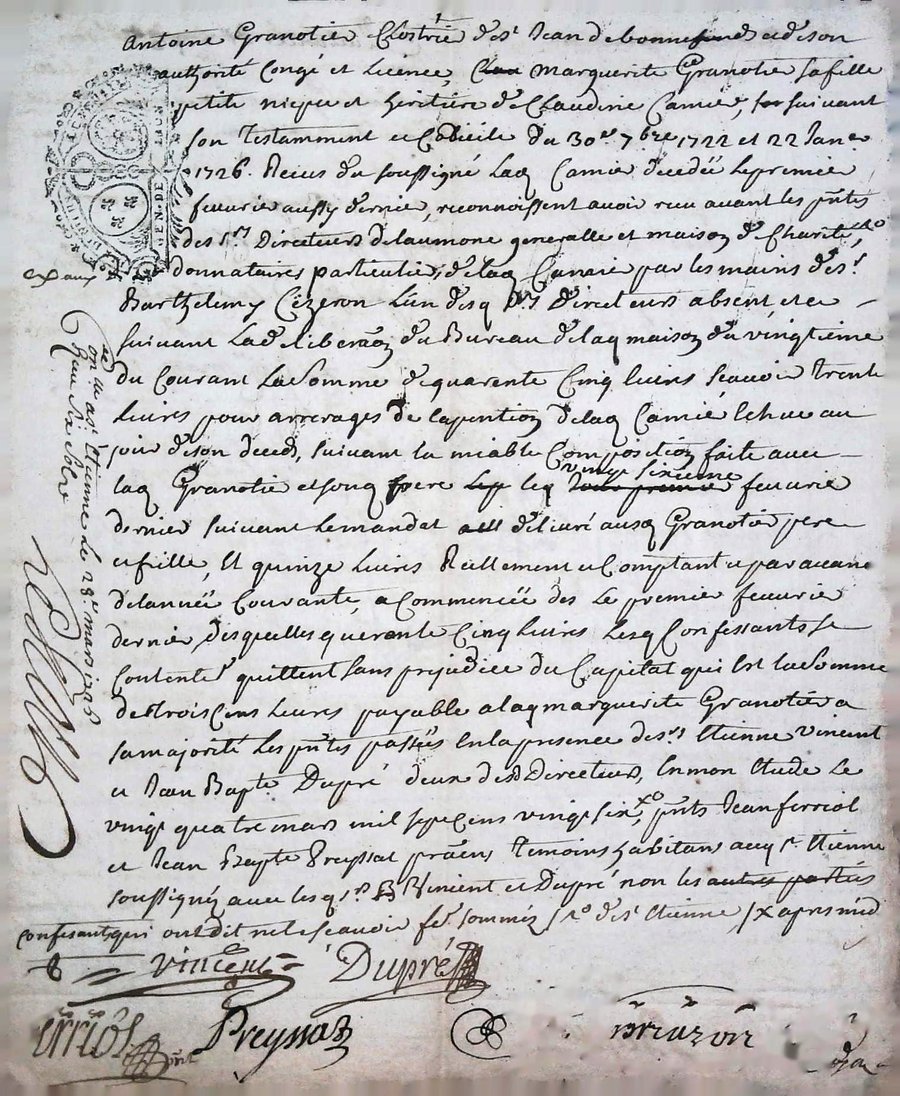 Antoine Granotier Clostrié de st Jean de bonnefond et de son
authorité Congé et Licence, marguerite Granotier sa fille
petite niepce et heritière de Claudine Camier, suivant
son Testamment et Codicile du 30e 7bre 1722 et 22 Janer
1726. Recus du soussigné Laq Camier decedée Le premier
fevurier aussy dernier, reconnoissent avoir receu avant les pntes
des srs Directeurs de laumone generalle et maison de Charité,
donnataires particuliers de laq Camier par les mains de sr
Barthelemy Cizeron L'un desq srs Directeurs absent etc
suivant La deliberaon du Bureau de laq maison du vingtieme
du Courant La somme de quarente Cinq livres scavoir trente
Livres pour arrerages de la pention de laq Camié Echue au
jour de son deced, suivant la miable Composition faite avec
laq Granotier et sonq pere le vingt sixieme fevurier
dernier suivant le mandat delivré ausq Granotier pere
et fille, Et quinze Livres Reellement et Comptant et par avance
de lannée Courante, a Commencée des Le premier fevurier
dernier, desquelles quarente Cinq Livres Lesq Confessants se
Contentet quittent sans prejudice du Capital qui Est La somme
de trois Cens Livres payable a laq marguerite Granotier a
sa majorité Les pntes passées En la presence de srs Etienne Vincent
et Jean Bapte Dupré deux desd Directeurs, En mon Etude Le
vingt quatre mars mil sept cens vingt six, pnts Jean ferriol
et Jean Bapte Preyssat praens temoins habitans aud st Etienne
soussignés avec lesq srs Vincent et Dupré non les autres parties
confessants, qui ont dit ne le scavoir de st Etienne / x apres midi
Vincent Dupré
Preyssat
st Etienne Le 28e mars 1726
GEN. DE LION